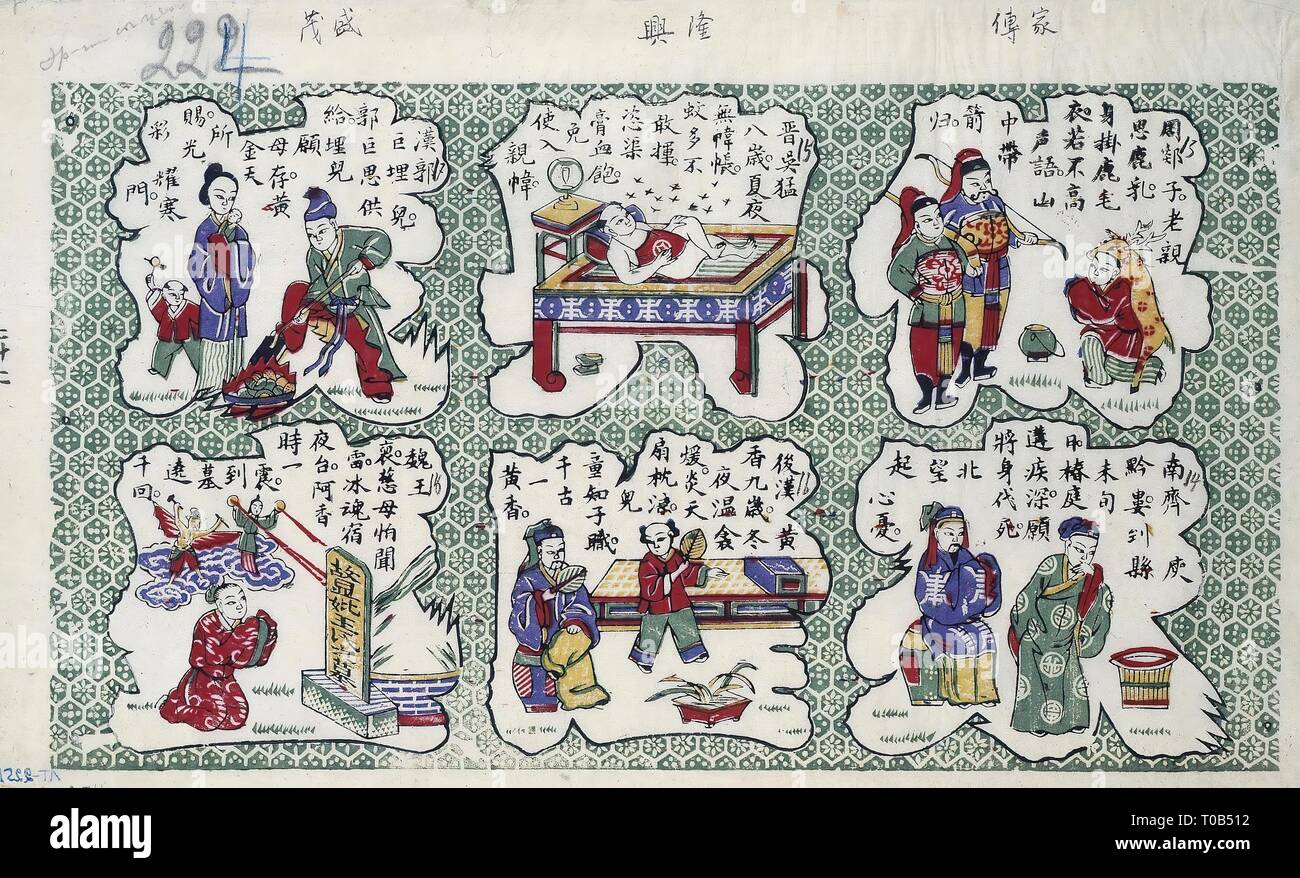 茂盛 興隆 傳家
222 4
周郯子。老親
思鹿乳。
身掛鹿毛
衣。若不高
声語。山
中帶
箭
归。
晋吳猛
八歲。夏夜
無幃帳。
蚊多不
敢揮。
恣渠
膏血飽。
免
使入
親幃。
漢郭
巨埋兒。
郭巨思供
給。埋兒
願
母存。黃
金天
所
賜。光
彩耀寒
門。
南齊庾
黔婁。到縣
未旬
日。椿庭
遘疾深。願
將身代死。
北望起
心憂。
14
後漢黃
香九歲。冬
夜溫衾
煖。炎天
扇枕涼。
兒
童知子職。
千古
一
黃香。
魏王
裒。慈母怕聞
雷。冰魂宿
夜台。阿香
時一
震。到墓遶
千回。
16
alamy
Image ID: T0B512
www.alamy.com